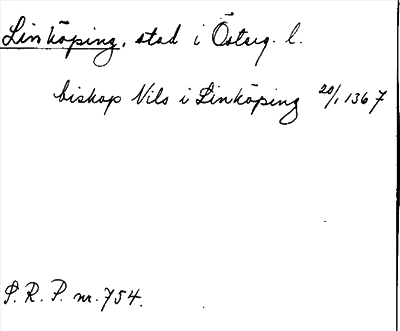 Linköping, stad i Österg. l.
biskop Nils i Linköping 20/1 1367
S. R. P. nr. 754.